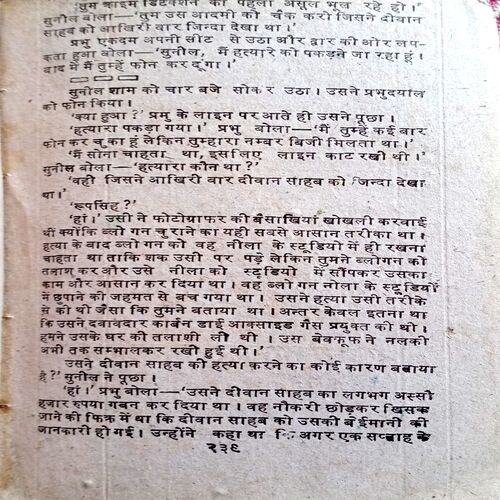 'तुम क्राइम डिटेक्शन का पहला असूल भूल रहे हो।'
सुनील बोला—'तुम उस आदमी को चैक करो जिसने दीवान
साहब को आखिरी बार जिन्दा देखा था।'
प्रभु एकदम अपनी सीट से उठा और द्वार की ओर लप-
कता हुआ बोला—'सुनील, मैं हत्यारे को पकड़ने जा रहा हूं।
बाद में मैं तुम्हें फोन कर दूंगा।'
सुनील शाम को चार बजे सोकर उठा। उसने प्रभुदयाल
को फोन किया।
'क्या हुआ?' प्रभु के लाइन पर आते ही उसने पूछा।
'हत्यारा पकड़ा गया।' प्रभु बोला—'मैं तुम्हें कई बार
फोन कर चुका हूं लेकिन तुम्हारा नम्बर बिजी मिलता था।'
'मैं सोना चाहता था, इसलिए लाइन काट रखी थी।'
सुनील बोला—'हत्यारा कौन था?'
'वही जिसने आखिरी बार दीवान साहब को जिन्दा देखा
था।'
'रूपसिंह?'
'हां।' उसी ने फोटोग्राफर की बैसाखियां खोखली करवाई
थीं क्योंकि ब्लो गन चुराने का यही सबसे आसान तरीका था।
हत्या के बाद ब्लो गन को वह नीला के स्टूडियो में ही रखना
चाहता था ताकि शक उसी पर पड़े लेकिन तुमने ब्लोगन को
तलाश कर और उसे नीला को स्टूडियो में सौंपकर उसका
काम और आसान कर दिया था। वह ब्लो गन नीला के स्टूडियो
में छुपाने की जहमत से बच गया था। उसने हत्या उसी तरीके
से की थी जैसा कि तुमने बताया था। अन्तर केवल इतना था
कि उसने दबावदार कार्बन डाई आक्साइड गैस प्रयुक्त की थी।
हमने उसके घर की तलाशी ली थी। उस बेवकूफ ने नलकी
अभी तक सम्भालकर रखी हुई थी।'
उसने दीवान साहब की हत्या करने का कोई कारण बताया
है?' सुनील ने पूछा।
'हां।' प्रभु बोला—'उसने दीवान साहब का लगभग अस्सी
हजार रुपया गबन कर दिया था। वह नौकरी छोड़कर खिसक
जाने की फिक्र में था कि दीवान साहब को उसकी बेईमानी की
जानकारी हो गई। उन्होंने कहा था कि अगर एक सप्ताह के
२३९